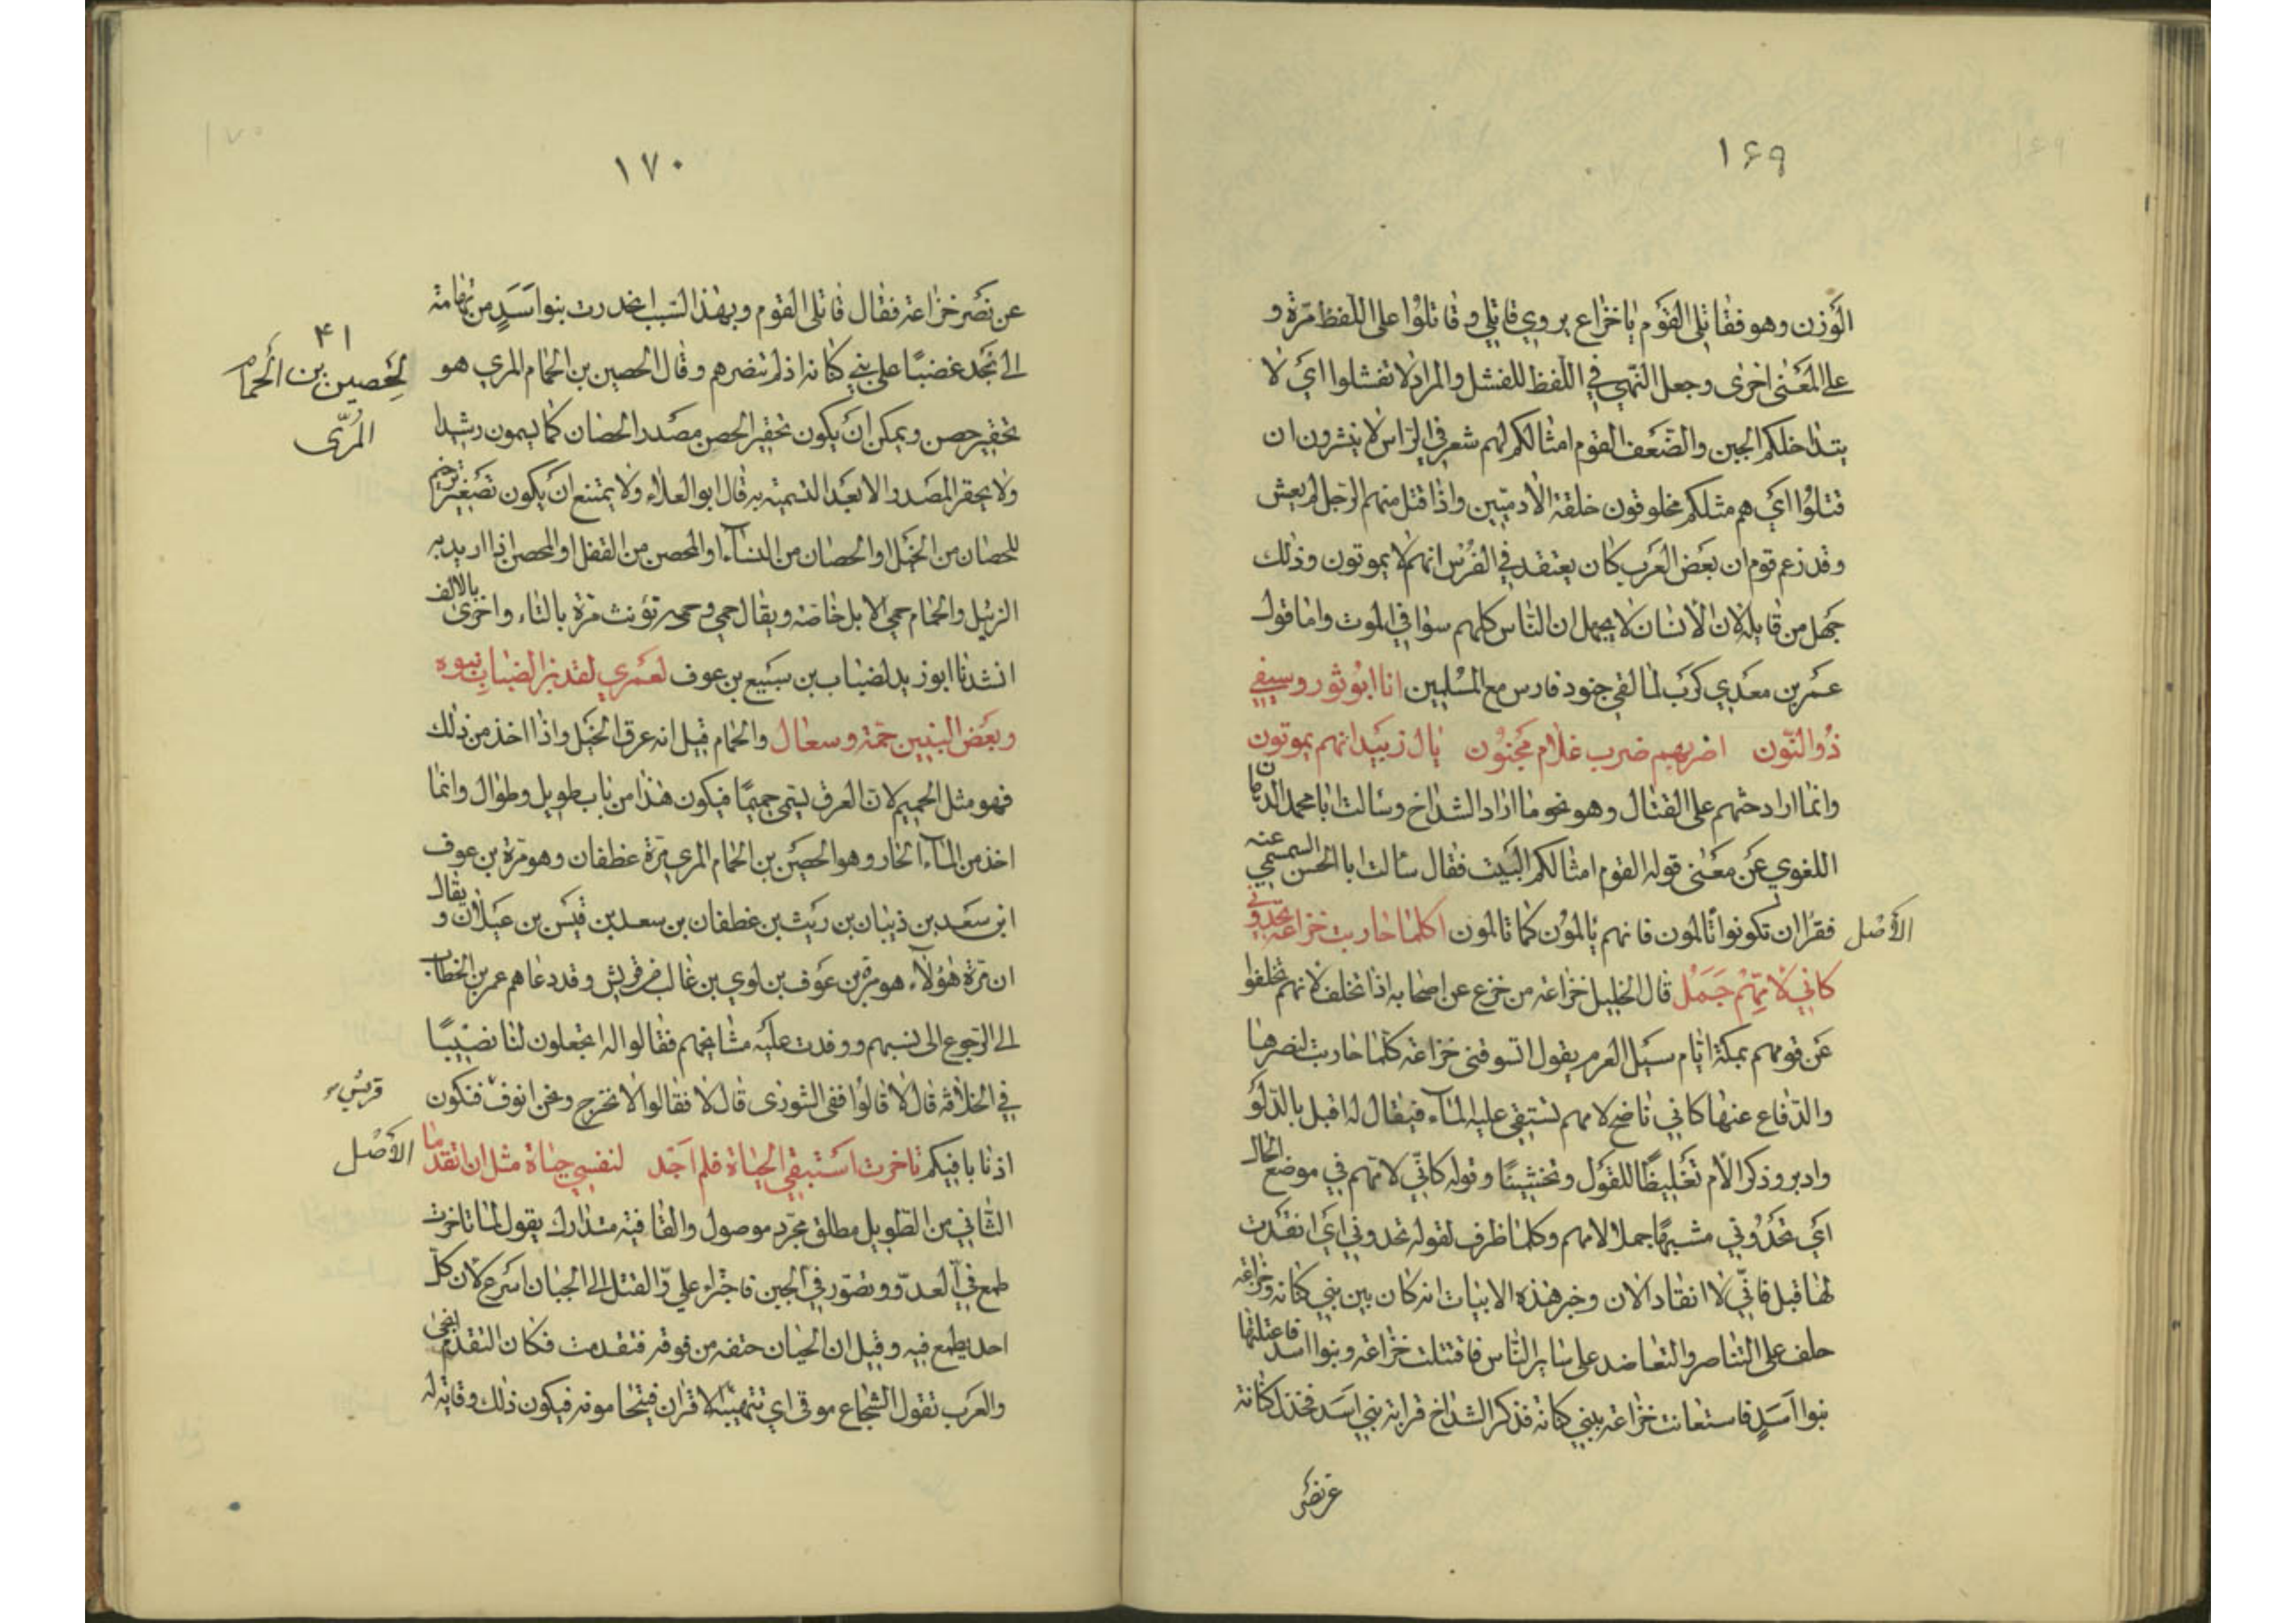 ١٦٩
الوزن وهو فقاتلى القوم يا خزاع يروي قاتلي وقاتلوا على اللفظ مرة و
على المعنى اخرى وجعل النهي في اللفظ للفشل والمراد لا تفشلوا اي لا
يتداخلكم الجبن والضعف القوم امثالكم لهم شعر في الراس لا ينشرون ان
قتلوا اي هم مثلكم مخلوقون خلقة الآدميين واذا قتل منهم الرجل لم يعش
وقد زعم قوم ان بعض العرب كان يعتقد في الفرس انهم لا يموتون وذلك
جهل من قايله لان الانسان لا يجهل ان الناس كلهم سوا في الموت واما قول
عمر بن معدي كرب لما لقي جنود فارس مع المسلمين انا ابو ثور وسيفي
ذو النون اضربهم ضرب غلام مجنون يال زبيد انهم يموتون
وانما اراد حثهم على القتال وهو نحو ما اراد الشداخ وسالت ابا محمد الدهان
اللغوي عن معنى قوله القوم امثالكم البيت فقال سالت ابا الحسن السمسمي عنه
الأصل
فقرا ان تكونوا تالمون فانهم يالمون كما تالمون اكلما حاربت خزاعة تحدوني
كاني لامهم جمل قال الخليل خزاعة من خزع عن اصحابه اذا تخلف لانهم تخلفوا
عن قومهم بمكة ايام سيل العرم يقول اتسوقنى خزاعة كلما حاربت لنصرها
والدفاع عنها كاني ناضح لامهم تستقي عليه الماء فيقال له اقبل بالدلو
وادبر وذكر الام تغليظا للقول وتخشينا وقوله كاني لامهم في موضع الحال
اي تحدوني مشبها جملا لامهم وكلما ظرف لقوله تحدوني اي انقدت
لها قبل فاني لا انقاد الان وخبر هذه الابيات انه كان بين بني كنانة وخزاعة
حلف على التناصر والتعاضد على ساير الناس فاقتتلت خزاعة وبنوا اسد فاعتلتها
بنوا اسد فاستعانت خزاعة ببني كنانة فذكر الشداخ قرابة بني اسد فخذل كنانة
عن نصر
١٧٠
عن نصر خزاعة فقال قاتلى القوم وبهذا السبب انحدرت بنوا اسد من تهامة
٤١
لحصين بن الحمام
المري
الى نجد غضبا على بني كنانة اذ لم تنصرهم وقال الحصين بن الحمام المري هو
تحقير حصن ويمكن ان يكون تحقير الحصن مصدر الحصان كما يسمون رشدا
ولا يحقر المصدر الا بعد التسمية به قال ابو العلاء ولا يمتنع ان يكون تصغير ترخيم
للحصان من الخيل او الحصان من النساء او المحصن من القفل او المحصن اذا اريد به
الزبيل والحمام حمى الابل خاصة ويقال حمى وحمه تؤنث مرة بالتاء واخرى بالالف
انشدنا ابو زيد لضباب بن سبيع بن عوف لعمري لقد بر الضباب بنوه
وبعض البنين حمة وسعال والحمام قيل انه عرق الخيل واذا اخذ من ذلك
فهو مثل الحميم لان العرق يسمى حميما فيكون هذا من باب طويل وطوال وانما
اخذ من الماء الحار وهو الحصين بن الحمام المري مرة غطفان وهو مرة بن عوف
ابن سعد بن ذبيان بن ريث بن غطفان بن سعد بن قيس بن عيلان و يقال
ان مرة هؤلاء هو مرة بن عوف بن لوي بن غالب من قريش وقد دعاهم عمر بن الخطاب
الى الرجوع الى نسبهم ووفدت عليه مشايخهم فقالوا له اتجعلون لنا نصيبا
في الخلافة قال لا قالوا ففى الشورى قال لا فقالوا لا نخرج ونحن انوف فنكون
قريش
اذنابا فيكم تاخرت استبقي الحياة فلم اجد لنفسي حياة مثل ان اتقدما
الأصل
الثاني من الطويل مطلق مجرد موصول والقافية متدارك يقول لما تاخرت
طمع في العدو وتصور في الجبن فاجتراء علي والقتل الى الجبان اسرع لان كل
احد يطمع فيه وقيل ان الجبان حتفه من فوقه فتقدمت فكان التقدم انجى
والعرب تقول الشجاع موقى اي تتهيبه الاقران فيتحامونه فيكون ذلك وقاية له